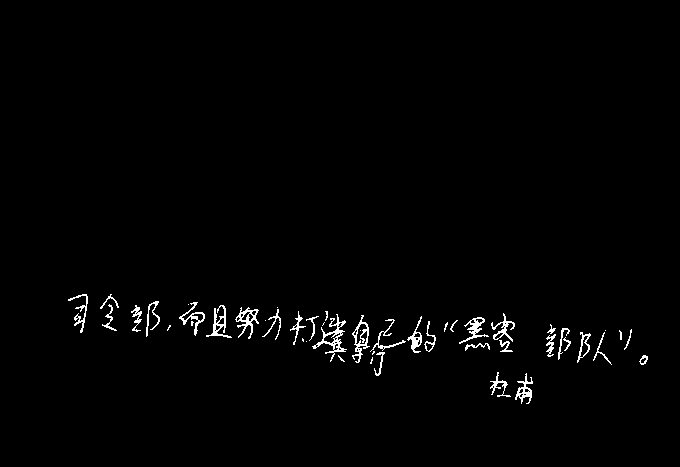 司令部，而且努力打造自己的“黑客部队”。
杜甫